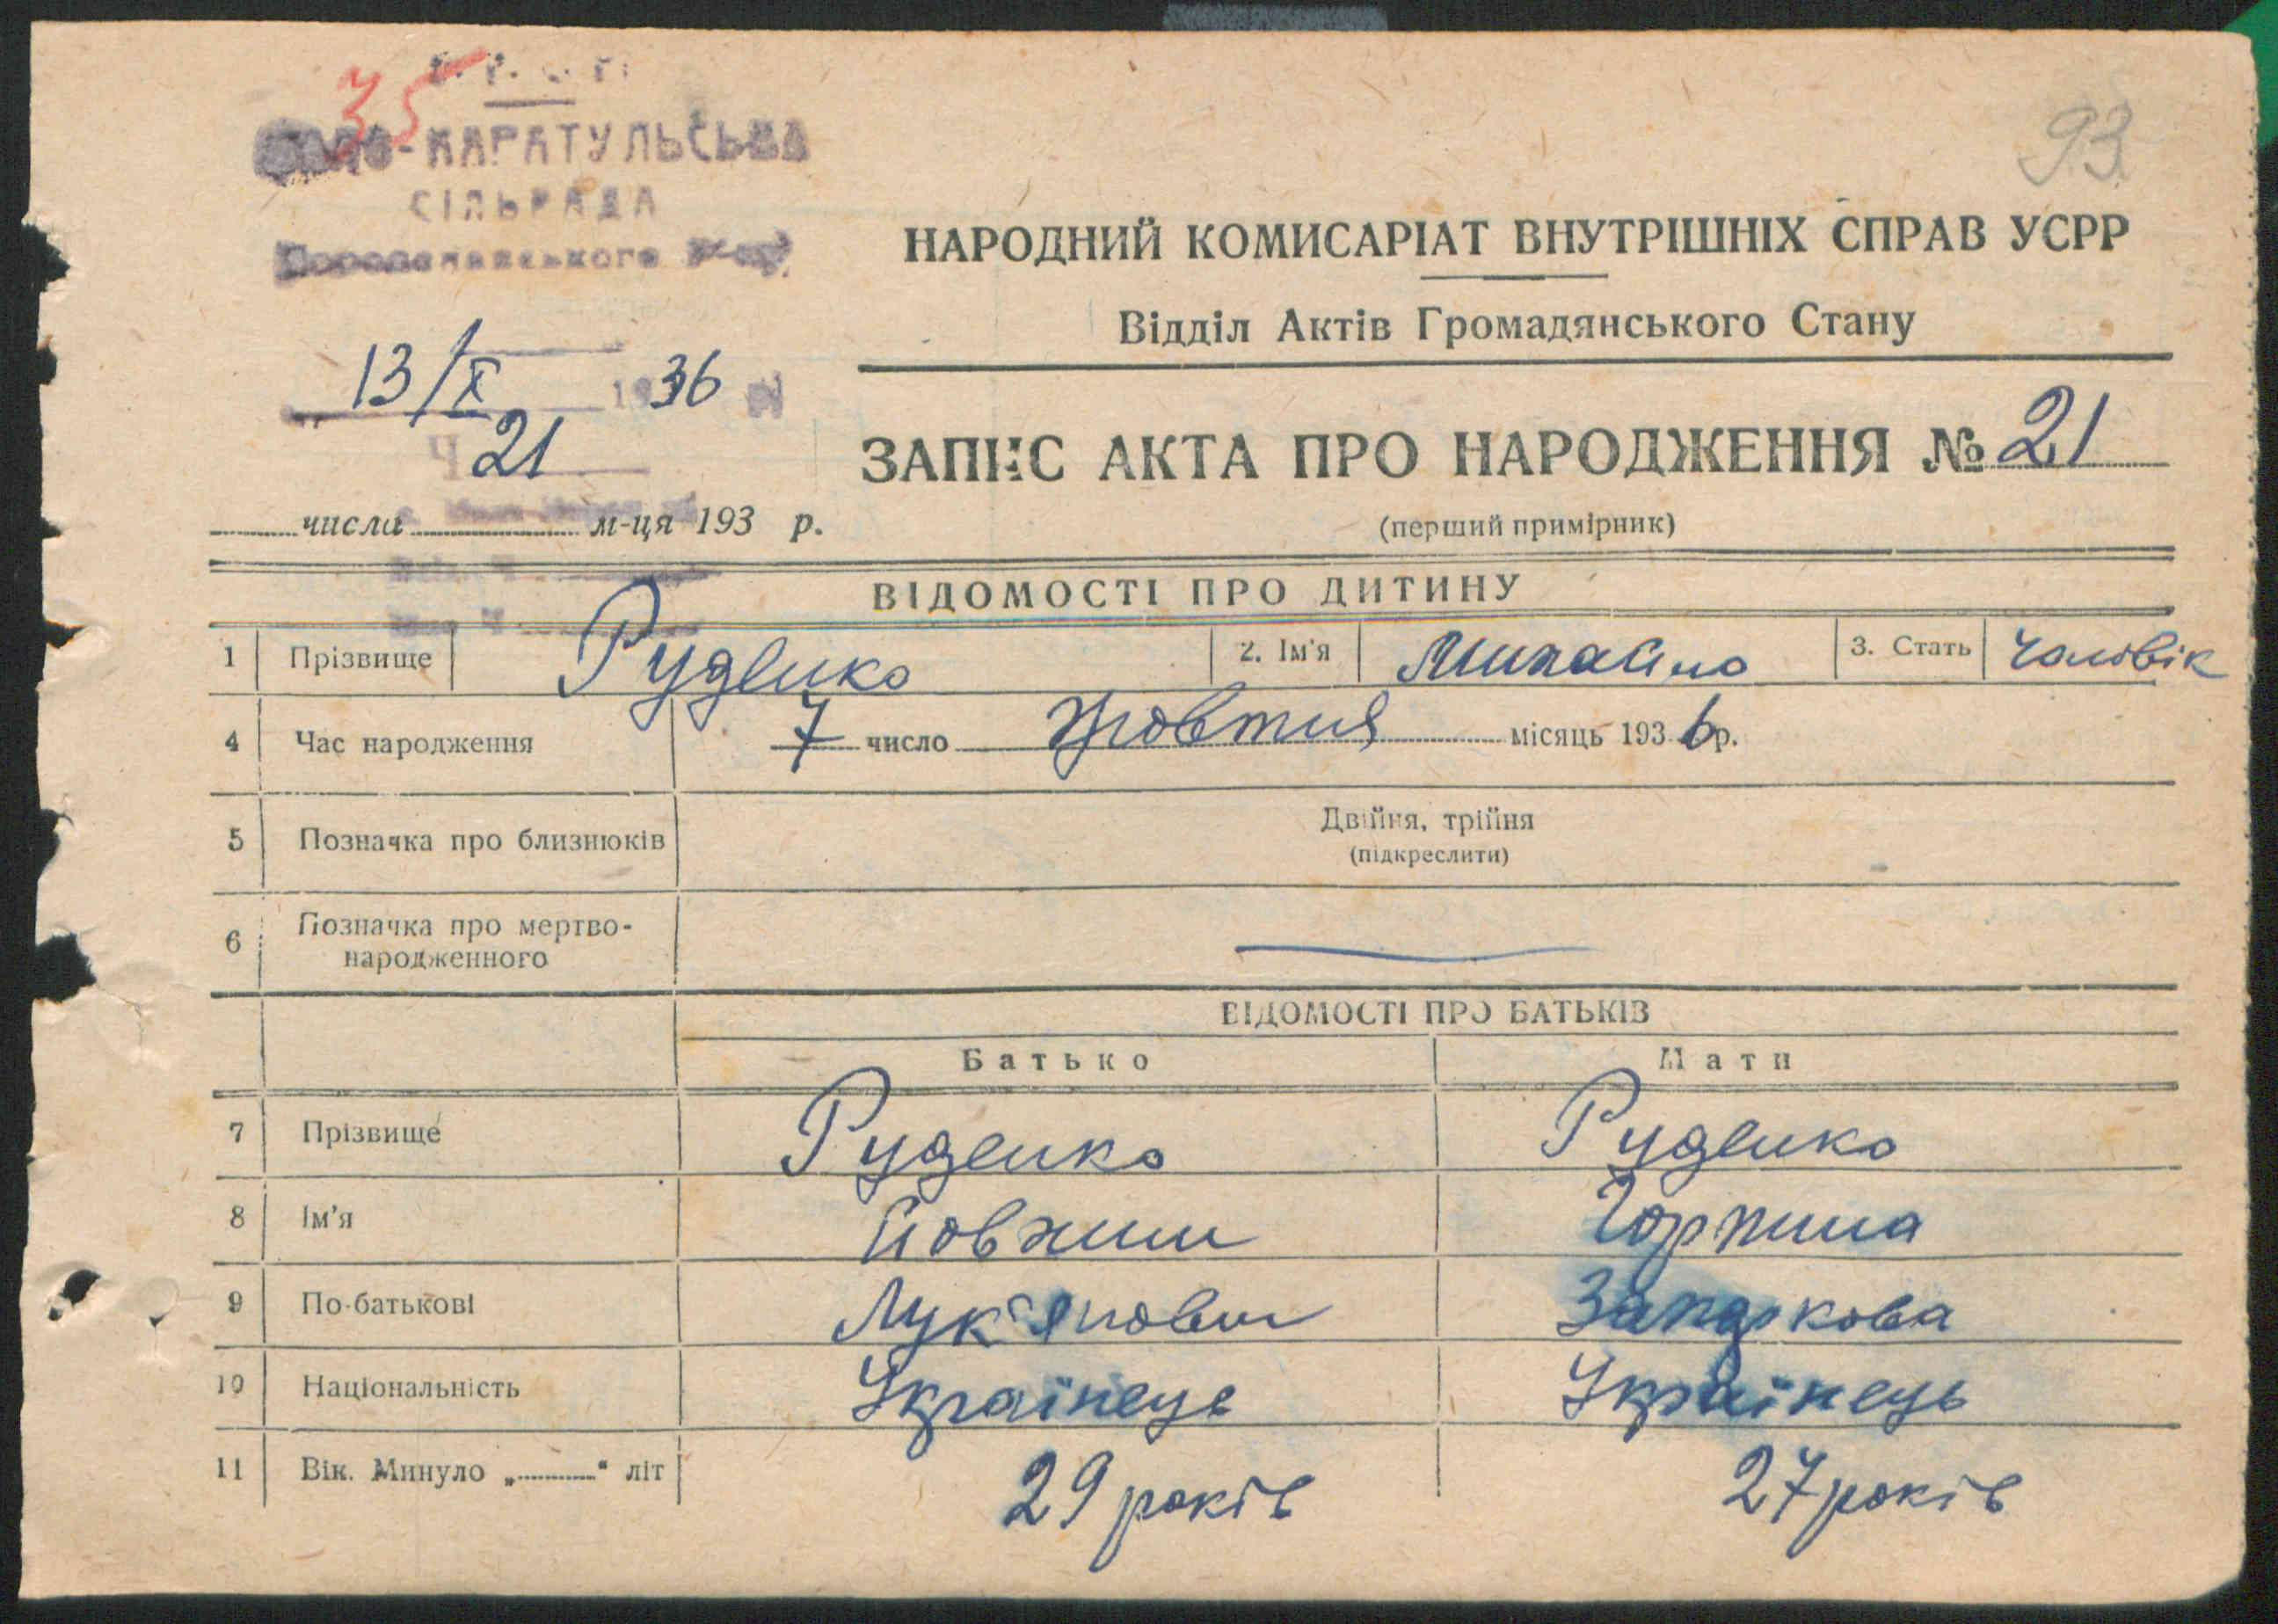 35
-КАРАТУЛЬСЬКА
СІЛЬРАДА
93
НАРОДНИЙ КОМИСАРІАТ ВНУТРІШНІХ СПРАВ УСРР
Відділ Актів Громадянського Стану
13/X 1936
Ч 21
ЗАПИС АКТА ПРО НАРОДЖЕННЯ № 21
числа м-ця 193 р.
(перший примірник)
ВІДОМОСТІ ПРО ДИТИНУ
1 Прізвище Руденко 2. Ім'я Михайло 3. Стать Чоловік
4 Час народження 7 число Жовтня місяць 1936 р.
5 Позначка про близнюків Двійня, трійня
(підкреслити)
6 Позначка про мертво-
народженного
ВІДОМОСТІ ПРО БАТЬКІВ
Батько Мати
7 Прізвище Руденко Руденко
8 Ім'я Йовхим Горпина
9 По-батькові Лук'янович
10 Національність Українець Українець
11 Вік. Минуло „ “ літ 29 років 27 років